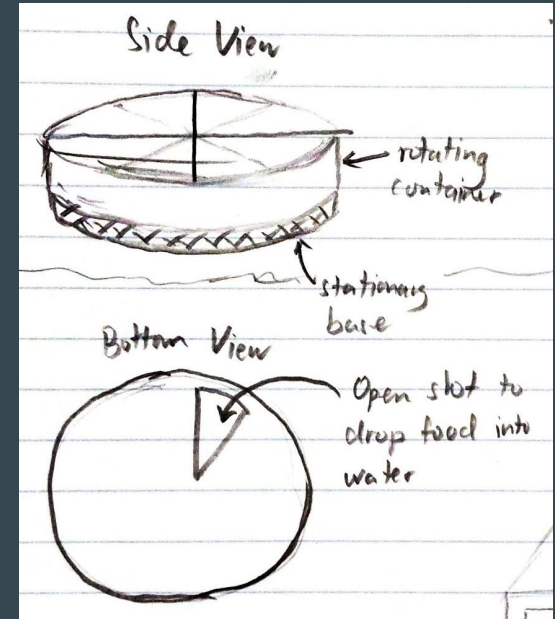 Side View
rotating
container
stationary
base
Bottom View
Open slot to
drop food into
water